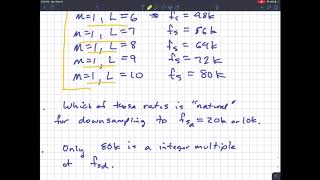 M=1, L=6 → fs = 48k
M=1, L=7 fs = 56k
M=1, L=8 fs = 64k
M=1, L=9 fs = 72k
M=1, L=10 fs = 80k
. Which of those ratios is "natural"
for downsampling to fsd = 20k or 10k.
. Only 80k is a integer multiple
of fsd.